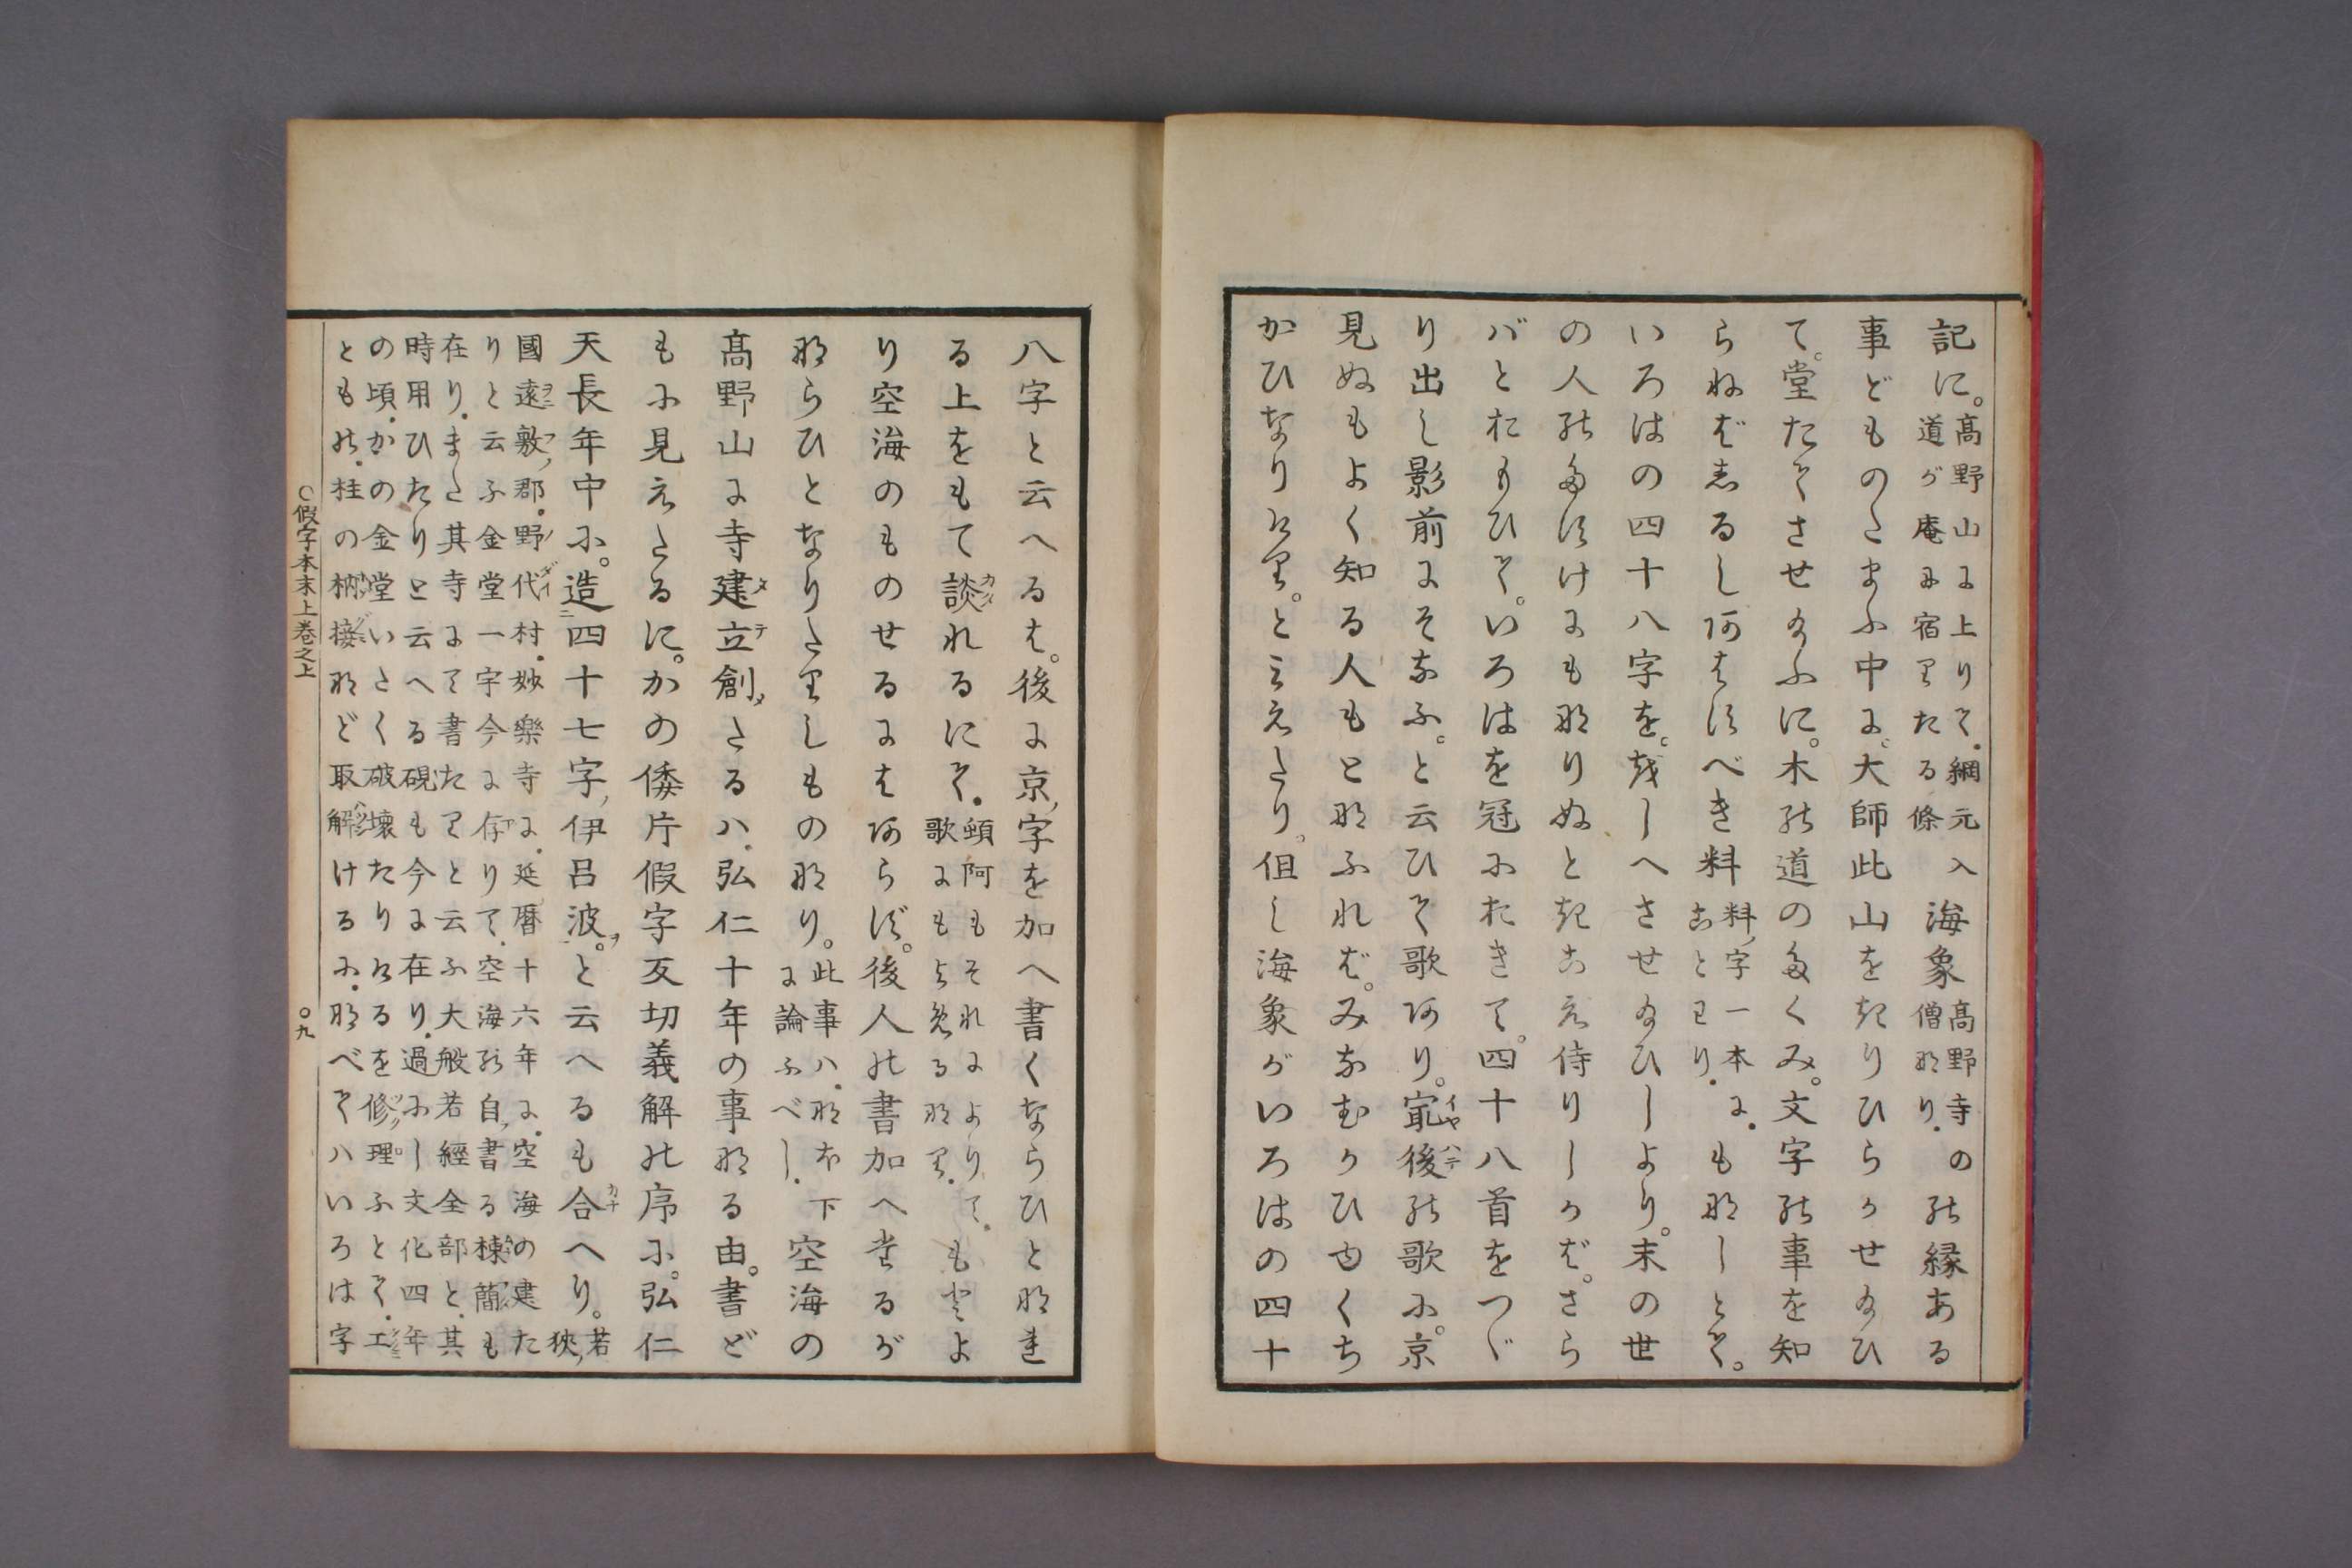 記に。高野山に上りて.綱元入
道が庵に宿りたる條海象高野寺の
僧なり.の縁ある
事どものたまふ中に。大師此山をひらかせ給ひ
て。堂たてさせ給ふに。木の道のたくみ。文字の事を知
らねばしるし阿はすべき料料,字一本に.
ことゝあり.もなしとぞ。
いろはの四十八字を。をしへさせ給ひしより。末の世
の人のたすけにもなりぬときこえ侍りしかば。さら
バとおもひて。いろはを冠におきて。四十八首をつゞ
り出し影前にそなふ。と云ひて歌阿り。冣後の歌に。京
見ぬもよく知る人もとなふれば。みなむかひゆくち
かひなりけり。とみえたり。但し海象がいろはの四十
八字と云へるは。後に京,字を加へ書くならひとなれ
る上をもて談れるにて.頓阿もそれによりて.
歌にもよめるなり.もとよ
り空海のものせるにハ阿らず。後人の書加へたるが
ならひとなりたりしもの也。此事ハ.なほ下
に論ふべし.空海の
高野山に寺建立創たるハ.弘仁十年の事なる由。書ど
もに見えたるに。かの倭片假字反切義解の序に。弘仁
天長年中に。造四十七字,伊呂波。と云へるも合へり。若
狹,
國遠敷,郡.野代村.妙樂寺に.延暦十六年に.空海の建た
りと云ふ金堂一宇今に存りて.空海の自,書る棟簡も
在り.また其寺にて書たりと云ふ大般若經全部と.其
時用ひたりと云へる硯も今に在り.過にし文化四年
の頃.かの金堂いたく破壞たりけるを修理ふとて.工
ともの.柱の枘接など取解けるに.なべてハいろは字
○假字本末上巻之上
○九